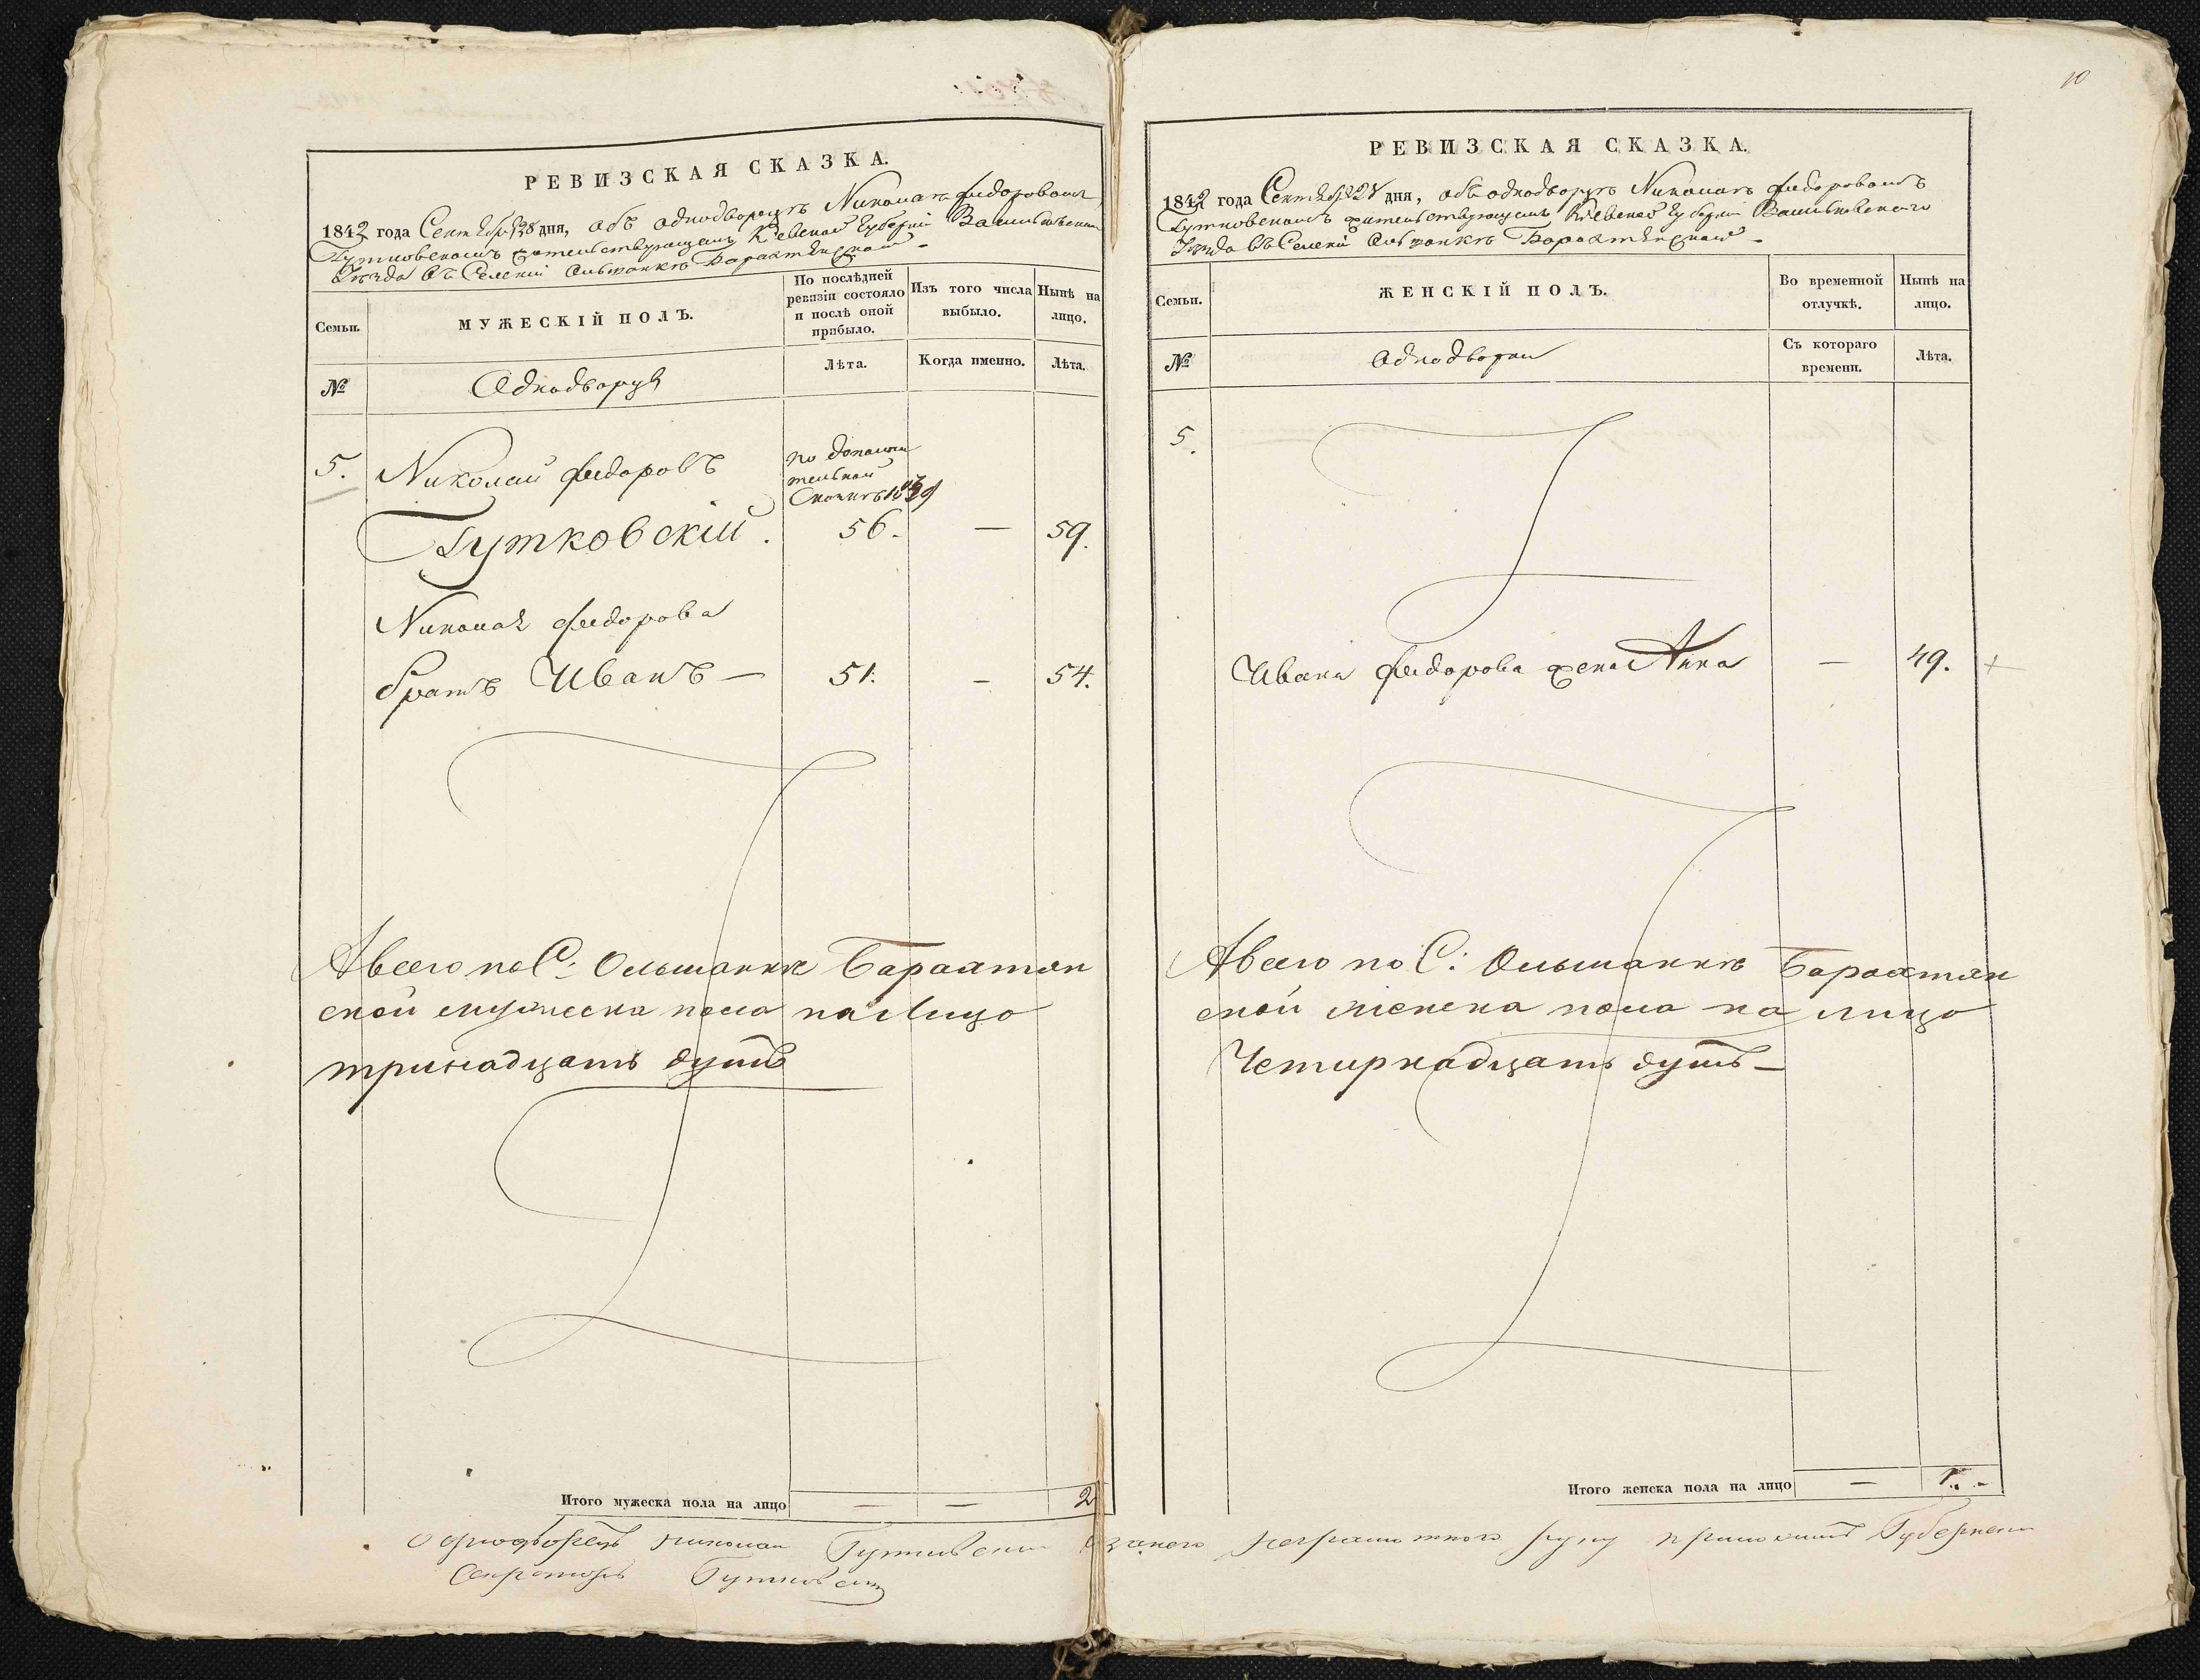 10
РЕВИЗСКАЯ СКАЗКА.
1842 года Сентября 28 дня, объ однодворцѣ Николаѣ Федоровомъ
Гутковскомъ жительствующемъ Кіевской Губерніи Васильковскаго
Уѣзда въ Селеніи Ольшанкѣ Барахтянской
Семьи.
МУЖЕСКІЙ ПОЛЪ.
По послѣдней
ревизіи состояло
и послѣ оной
прибыло.
Изъ того числа
выбыло.
Нынѣ на
лицо.
№
Однодворцы
Лѣта.
Когда именно.
Лѣта.
5.
Николай Федоровъ
по дополни
тельной
Гутковскій.
56.
—
59.
Николая Федорова
братъ Иванъ —
51.
—
54.
А всего по С: Ольшанкѣ Барахтян
ской мужеска пола на лицо
тринадцать душъ
Итого мужеска пола на лицо
—
—
2
РЕВИЗСКАЯ СКАЗКА.
1842 года Сентября 28 дня, объ однодворцѣ Николаѣ Федоровомъ
Гутковскомъ жительствующемъ Кіевской Губерніи Васильковскаго
Уѣзда въ Селеніи Ольшанкѣ Барахтянской
Семьи.
ЖЕНСКІЙ ПОЛЪ.
Во временной
отлучкѣ.
Нынѣ на
лицо.
№
Однодворки
Съ котораго
времени.
Лѣта.
5.
Ивана Федорова жена Анна
—
49.
А всего по С: Ольшанкѣ Барахтян
ской женска пола на лицо
Четырнадцать душъ —
Итого женска пола на лицо
—
1.
Однодворецъ Николай Гутковскій а за него неграмотного руку приложилъ Губернскій
Секретарь Гутковскій